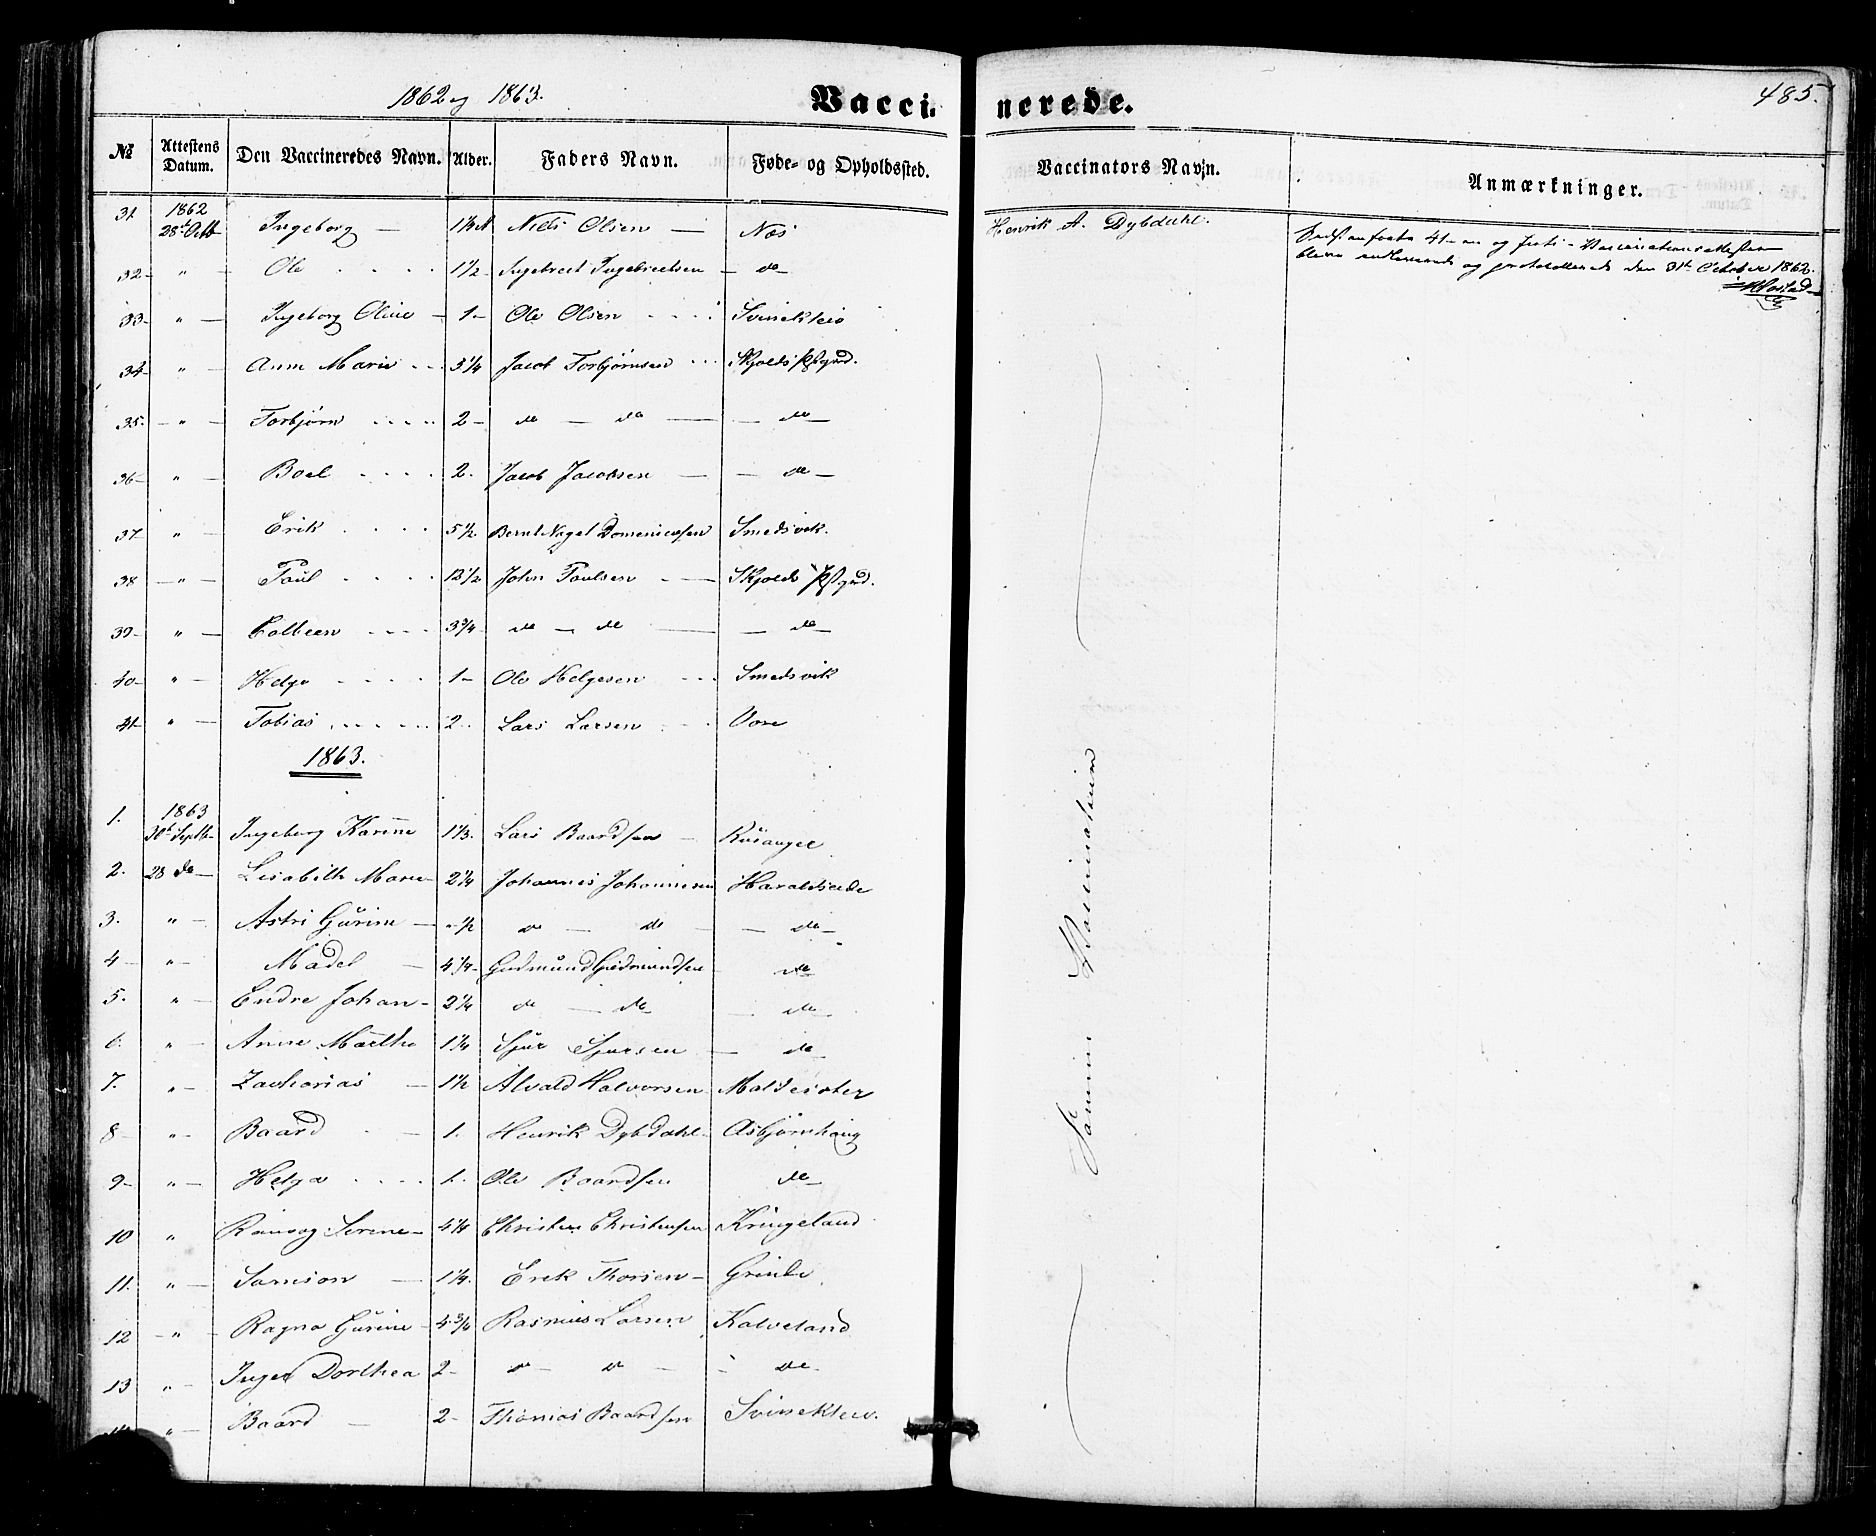 1862 og 1863.
Vaccinerede.
485.
№ Attestens Datum. Den Vaccineredes Navn. Alder. Faders Navn. Føde- og Opholdssted. Vaccinators Navn. Anmærkninger.
31 1862 28de Octb Ingeborg — 1½ Niels Olsen — Næs Henrik A. Dybdahl.
og den 31te October 1862.
32- " — Ole 1½- Ingebret Ingebretsen — do —
33- " — Ingeborg Oline — 1- Ole Olsen Svinekleiv
34- " — Anne Marie 3¼ Jacob Torbjørnsen Skjolds Pstgjd.
35- — " — Torbjørn 2- do — do — — do —
36- " — Boel 2. Jacob Jacobsen — — do —
37- " — Erik 5½ Bernt Nagel Domenicusen Smedsvik.
38- — " — Paul 12½ John Paulsen — Skjolds Pstgjd.
39- " — Colbeen 3¾- do — do — — do —
40- " — Helge 1- Ole Helgesen Smedsvik
41- " — Tobias 2 Lars Larsen Vore
1863.
1. 1863 30te Septb- Ingeborg Karine 1⅓. Lars Baardsen — Røvanger
2. 28 do — Lisabeth Marie- 2¼ Johannes Johannesen Haraldseide
3. " — Astri Gurine — " ½ do — do — — do —
4 " — Madel — 4¼- Gudmund Gudmundsen do
5. " — Endre Johan - 2¼ do — do — do —
6. " — Anne Marthe 1¼ Sjur Sjursen — do —
7. " — Zacharias — 1½ Alvald Halvorsen Molteister
8 " — Baard — 1. Henrik Dybdahl- Asbjørnhaug
9- " — Helga 1. Ole Baardsen do —
10 " Ranvog Serene- 4¼ Christen Christensen Kringeland
11. " — Samson — 1¼. Erik Thorsen — Grinde
12 — " — Ragna Gurine - 4¾ Rasmus Larsen Kalveland
13 " — Inger Dorthea 2- do — do — — do —
" — Baard — 2- Thomas Baardsen Svinekleiv.
Samme Vaccinateur